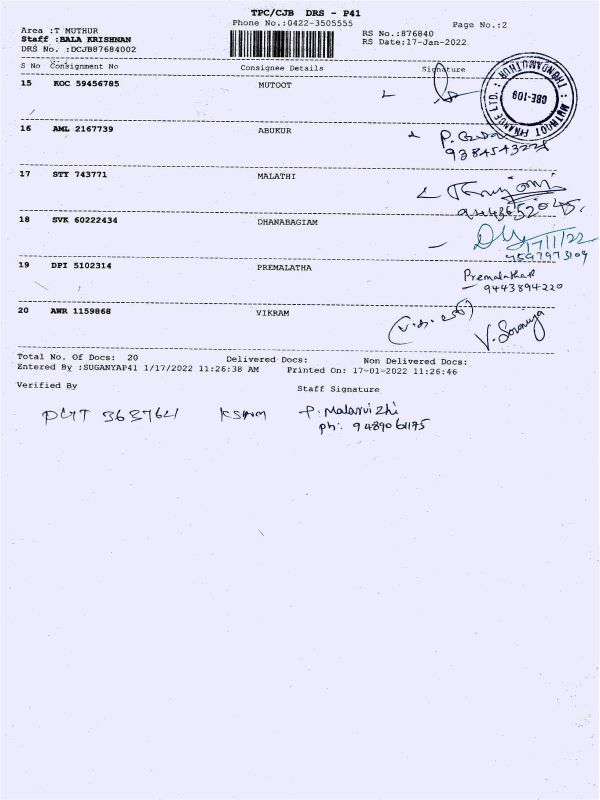 TPC/CJB DRS - P41
Phone No.:0422-3505555
Page No.:2
Area :T MUTHUR
Staff :BALA KRISHNAN
DRS No. :DCJB87684002
RS No.:876840
RS Date:17-Jan-2022
S No Consignment No Consignee Details Signature
15 KOC 59456785 MUTOOT
MUTHOOT FINANCE LTD.
CBE-109
16 AML 2167739 ABUKUR
17 STY 743771 MALATHI
18 SVK 60222434 DHANABAGIAM
17/1/22
7597973109
19 DPI 5102314 PREMALATHA
Premalatha
9443894220
20 AWR 1159868 VIKRAM
V. Soranya
Total No. Of Docs: 20 Delivered Docs: Non Delivered Docs:
Entered By :SUGANYAP41 1/17/2022 11:26:38 AM Printed On: 17-01-2022 11:26:46
Verified By Staff Signature
P. Malarvizhi
ph: 9489061195